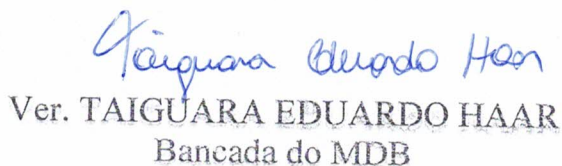 Taiguara Eduardo Haar
Ver. TAIGUARA EDUARDO HAAR
Bancada do MDB